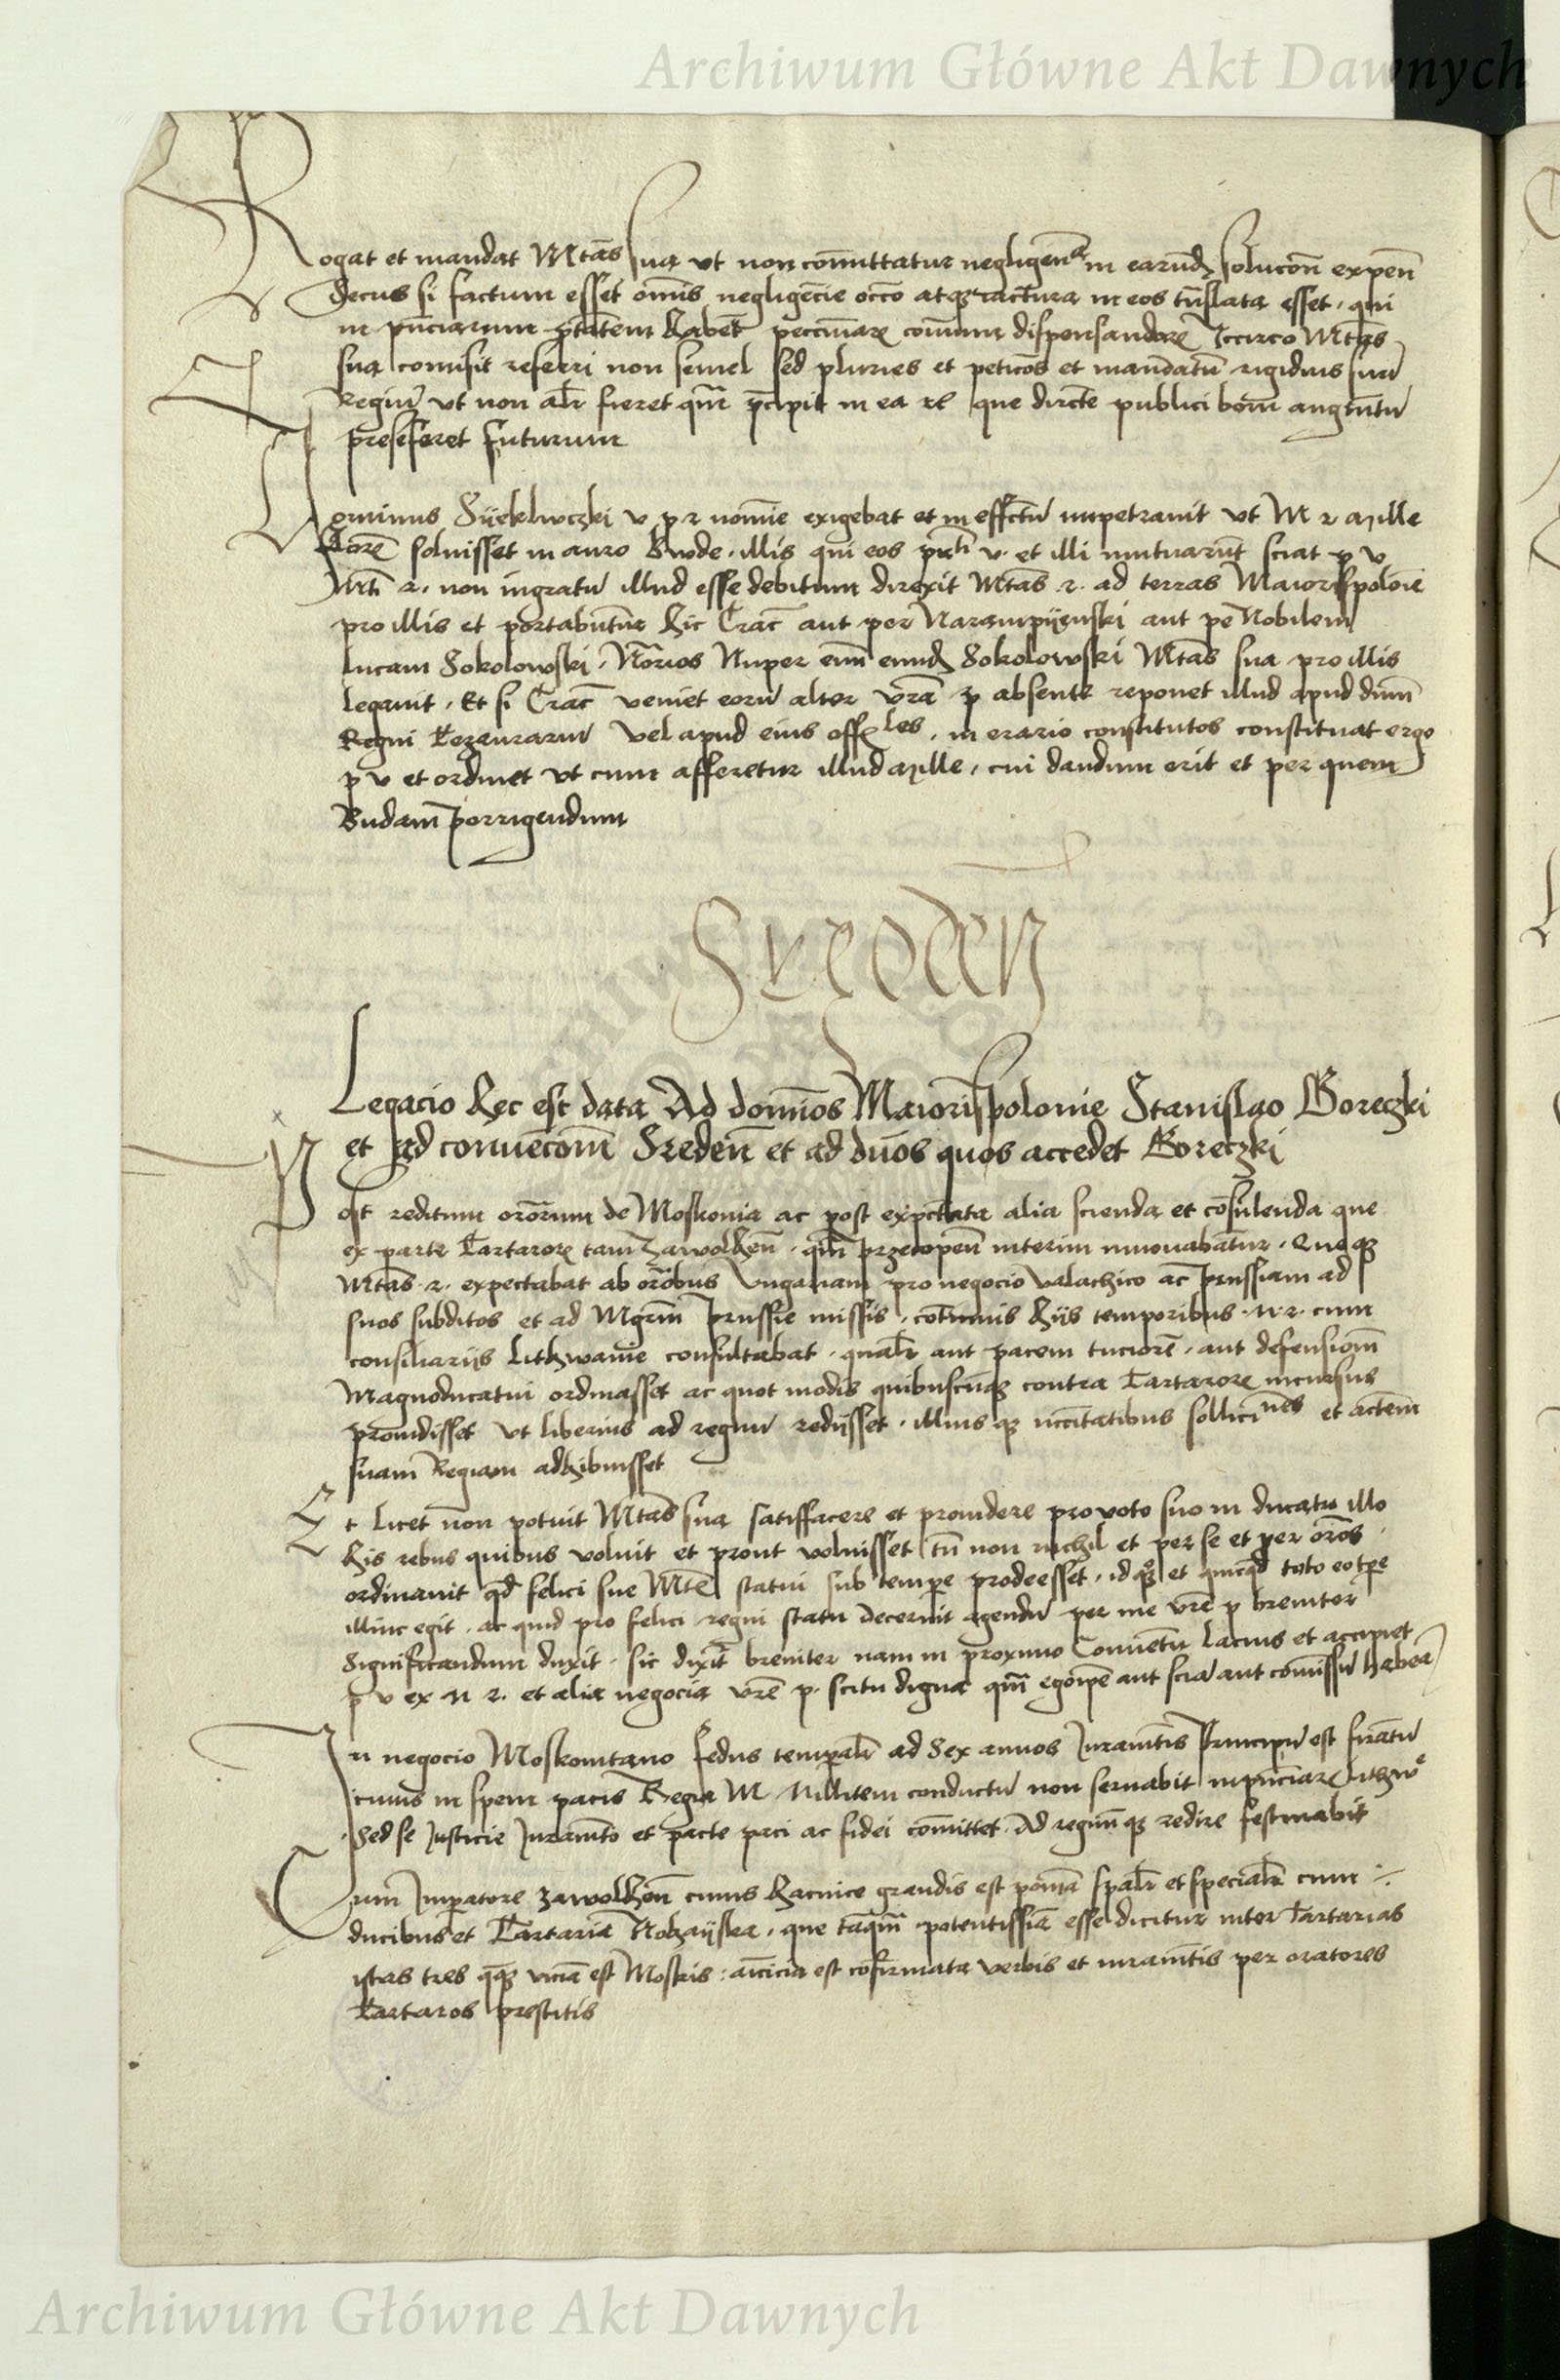 Archiwum Główne Akt Dawnych
Rogat et mandat Mtas sua vt non committatur negligen in earund solucon expen
Secus si factum esset omnis negligencie occo atq iactura in eos tnslata esset, qui
in ptatem habet peccuniar comunem dispensandor Iccirco Mtas
sua comisit referri non semel sed pluries et peticos et mandatu rigidius suu
Regiu vt non alr fieret qm pcipit in ea que dircte publici boni augmtu
preseferet futurum
Dominus v p r nomine exigebat et in effctu impetrauit vt M r mille
floren soluisset in auro Bude, illis qui eos v. et illi mutuarunt sciat p v
Mti r. non ingratu illud esse debitum direxit Mtas r. ad terras Maiorispolonie
pro illis et portabuntur hic Crac aut per aut pe Nobilem
lucam Sokolowski, Nuper eni eund Sokolowski Mtas sua pro illis
legauit, Et si Crac veniet eoru alter vra p absente reponet illud apud dnm
Regni Tezaurariu vel apud eius offles, in erario constitutos constituat ergo
p v et ordinet vt cum afferetur illud mille, cui dandum erit et per quem
Budam porrigendum
Sreden
Legacio hec est data Ad dominos Maiorispolonie Stanislao Goreczki
et ad conuencom Sreden et ad dnos quos accedet Goreczki
Post reditum ororum de Moskouia ac post expctata alia scienda et consulenda que
ex parte Tartaror tam Zawolhen. qm przecopen interim innouabantur. Que q
Mtas r. expectabat ab oratobus Vngariam pro negocio Valachico ac prussiam ad
suos subditos et ad Mgrm prussie missis, continuis hijs temporibus M r. cum
consiliarijs Lithwanie consultabat, qualr aut pacem tucior, aut defensiom
Magnoducatui ordinasset ac quot modis quibuscunq contra Tartaror incursus
prouidisset vt liberius ad regnu redijsset, illius q nccitatibus sollicines et actem
suam Regiam adhibuisset
Et licet non potuit Mtas sua satisfacere et prouidere pro voto suo in ducatu illo
his rebus quibus voluit et prout voluisset tn non nichil et per se et per oros
ordinauit qd felici sue Mtis statui sub tempe prodeesset, id q et quicqd toto eo tpe
illinc egit, ac quid pro felici regni statu decernit agendu per me vre p breuiter
significandum duxit, sic dixit breuiter nam in proximo Conuentu lacius et accipiet
p v ex M r. et alia negocia vre p. scitu digna qm egoipe aut scia aut comissu habea
In negocio Moskouitano fedus temporalr ad sex annos Iuramtis Principu est firmatu
cuius in spem pacis Regia M Militem conductu non seruabit in Lithwe
Sed se Iusticie Iuramto et pacte paci ac fidei comittet. Ad regnumq redire festinabit
Cum Impatore zawolhen cuius hacnice grandis est potencia spalr et specialr cum
ducibus et Tartaria Nohayska, que tamqm potentissia esse dicitur inter Tartarias
istas tres vicia est Mostris: amicicia est confirmata verbis et iuramtis per oratores
Tartaros prestitis
Archiwum Główne Akt Dawnych